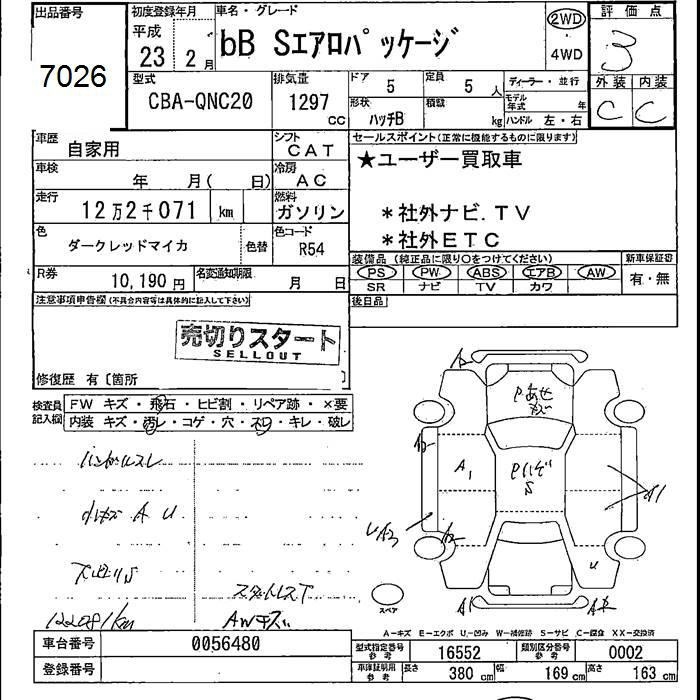 出品番号
7026
初度登録年月
平成
23 2月
車名・グレード
bB Sエアロパッケージ
2WD
4WD
評価点
3
外装 内装
C C
型式
CBA-QNC20
排気量
1297
cc
ドア 5
定員 5 人
形状 ハッチB
積数 kg
ディーラー・並行
モデル年式 年
ハンドル 左・右
車歴 自家用
シフト CAT
車検 年 月( 日)
冷房 AC
走行 12万2千071 km
燃料 ガソリン
色 ダークレッドマイカ 色替
色コード R54
R券 10,190円
名変通知期限 月 日
セールスポイント(正常に機能するものに限ります)
★ユーザー買取車
*社外ナビ.TV
*社外ETC
装備品 (純正品に限り○をつけてください)
新車保証書
PS PW ABS エアB AW
有・無
SR ナビ TV カワ
後日品
注意事項申告欄(不具合内容等は具体的に記入して下さい)
売切りスタート
SELLOUT
修復歴 有〔箇所 〕
検査員記入欄
FW キズ・飛石・ヒビ割・リペア跡・×要
内装 キズ・汚レ・コゲ・穴・スレ・キレ・破レ
ハンドルスレ
小キズ A U
スタットレスT
122081km
AWキズ
A
A1
A2
UA3
U
スペア
A-キズ E-エクボ U-凹み W-補修跡 S-サビ C-腐食 XX-交換済
車台番号 0056480
登録番号
型式指定番号 参考 16552
類別区分番号 参考 0002
車庫証明用 参考 長さ 380cm 幅 169cm 高さ 163cm